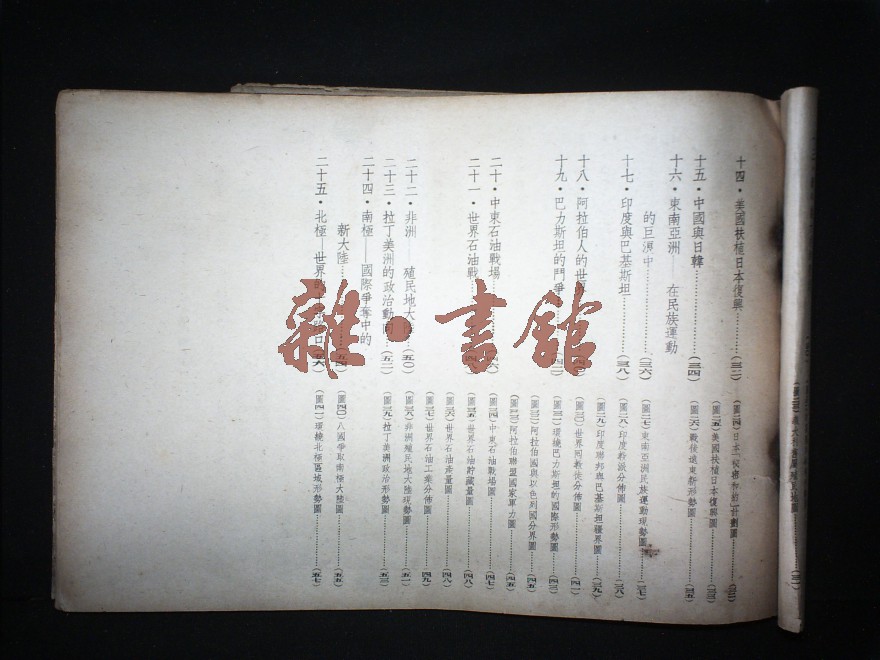 十四・美國扶植日本復興………(三二)
(圖二四)日本「松樹和約」計劃圖………(三三)
(圖二五)美國扶植日本復興圖………(三三)
十五・中國與日韓………(三四)
(圖二六)戰後遠東新形勢圖………(三五)
十六・東南亞洲——在民族運動
的巨浪中………(三六)
(圖二七)東南亞洲民族運動現勢圖………(三七)
十七・印度與巴基斯坦………(三八)
(圖二八)印度教派分佈圖………(三八)
(圖二九)印度聯邦與巴基斯坦疆界圖………(三九)
十八・阿拉伯人的世界
(圖三〇)世界回教徒分佈圖………(四一)
十九・巴力斯坦的鬥爭………(四二)
(圖三一)環繞巴力斯坦的國際形勢圖………(四三)
(圖三二)阿拉伯國與以色列國分界圖………(四五)
(圖三三)阿拉伯聯盟國家軍力圖………(四五)
二十・中東石油戰場………(四六)
(圖三四)中東石油戰場圖………(四七)
二十一・世界石油戰………(四八)
(圖三五)世界石油貯藏量圖………(四八)
(圖三六)世界石油產量圖………(四八)
(圖三七)世界石油工業分佈圖………(四九)
二十二・非洲——殖民地大陸………(五〇)
(圖三八)非洲殖民地大陸現勢圖………(五一)
二十三・拉丁美洲的政治動向………(五二)
(圖三九)拉丁美洲政治形勢圖………(五三)
二十四・南極——國際爭奪中的
新大陸………(五四)
(圖四〇)八國爭取南極大陸圖………(五五)
二十五・北極——世界的十字路口………(五六)
(圖四一)環繞北極區域形勢圖………(五七)
雜・書館